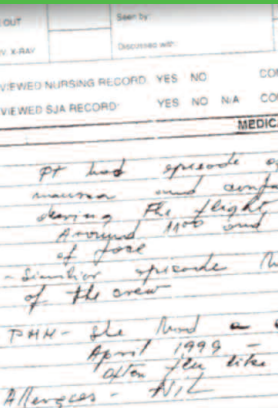 OUT
Seen by:
V. X-RAY
Discussed with:
VIEWED NURSING RECORD: YES NO CO
VIEWED SJA RECORD: YES NO N/A CO
MEDIC
Pt had episode
nausea and conf
during the flight
Around 1100 and
of face
- Similior episode
of the crew
PMH - She had a
April 1999 -
often flu like
Allergies - NIL